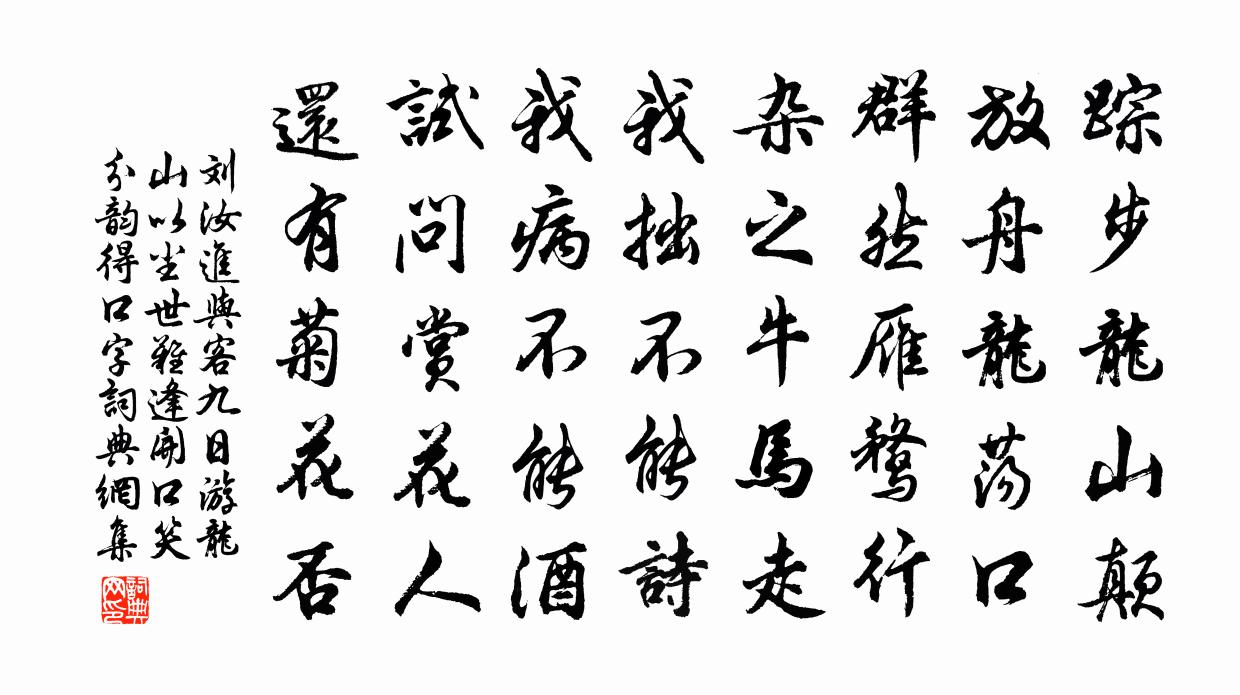 踪步龍山颠
放舟龍荡口
群然雁鶩行
杂之牛馬走
我拙不能詩
我病不能酒
試問賞花人
還有菊花否
刘汝進與客九日游龍
山以尘世難逢開口笑
分韵得口字詞典網集
詞典网印